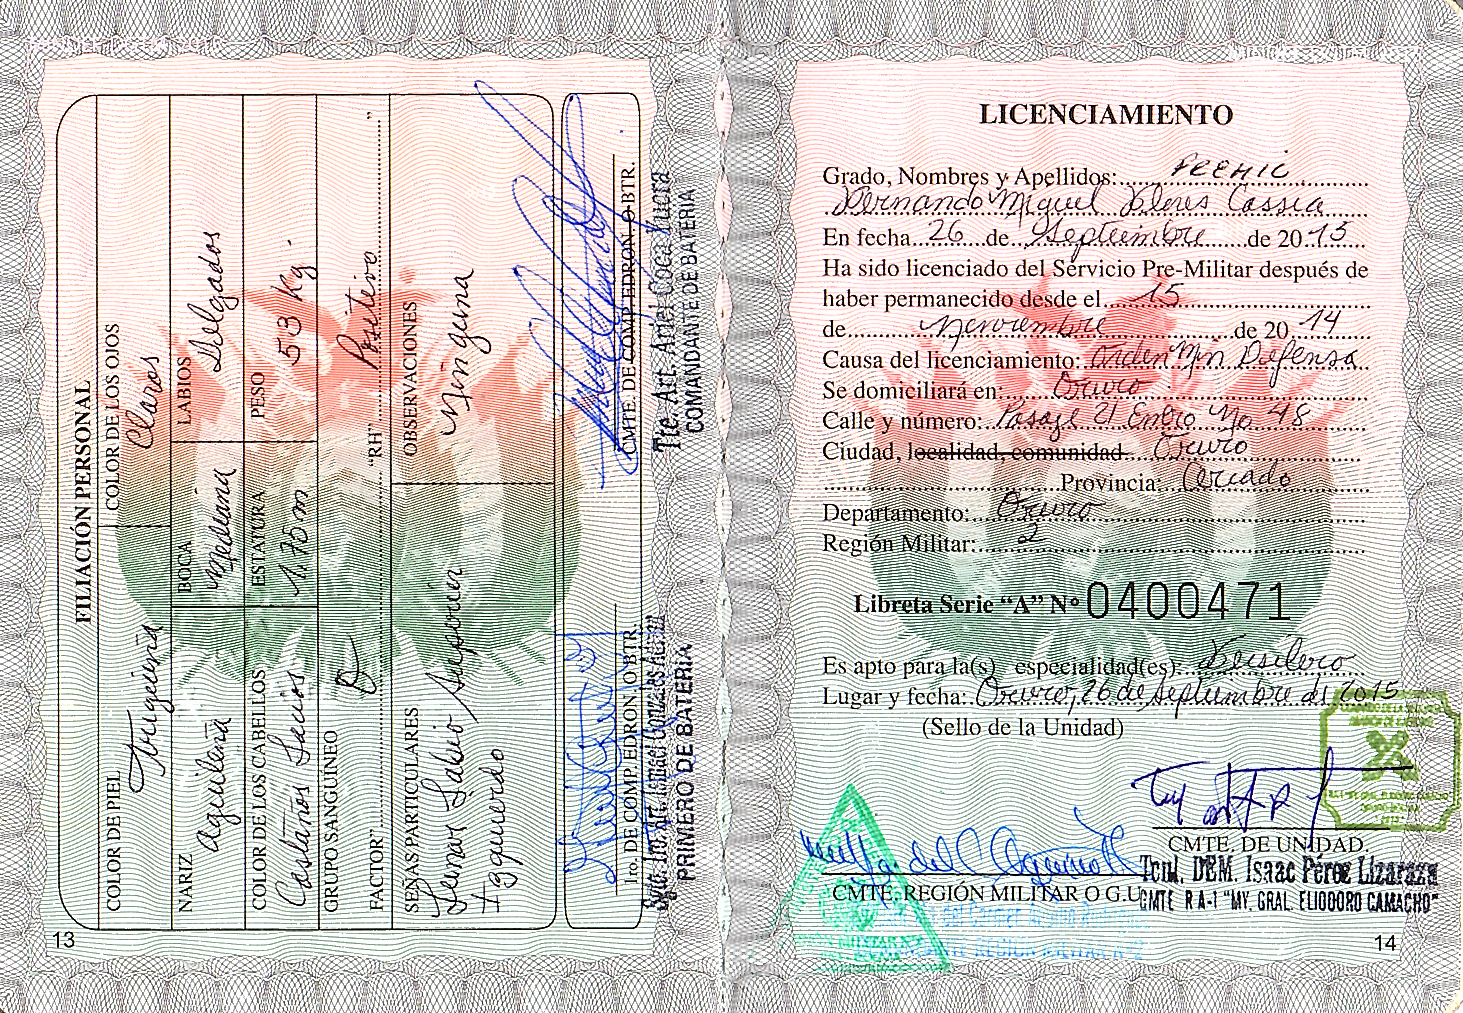 FILIACIÓN PERSONAL
COLOR DE PIEL
Trigueña
COLOR DE LOS OJOS
Claros
NARIZ
Aguileña
BOCA
Mediana
LABIOS
Delgados
COLOR DE LOS CABELLOS
Castaños Lacios
ESTATURA
1.75m
PESO
53 kg.
GRUPO SANGUÍNEO
O
FACTOR" "RH" Positivo "
SEÑAS PARTICULARES
Lunar Labio Superior
Izquierdo
OBSERVACIONES
Ninguna
1ro. DE COMP. EDRON O BTR.
PRIMERO DE BATERIA
CMTE. DE COMP. EDRON O BTR.
Tte. Art. Ariel Coca
COMANDANTE DE BATERIA
13
LICENCIAMIENTO
Grado, Nombres y Apellidos:
Fernando Miguel
En fecha 26 de Septiembre de 2015
Ha sido licenciado del Servicio Pre-Militar después de
haber permanecido desde el 15
de Noviembre de 2014
Causa del licenciamiento: Orden Min Defensa
Se domiciliará en: Oruro
Calle y número: Pasaje 21 No 48
Ciudad, localidad, comunidad Oruro
Provincia: Cercado
Departamento: Oruro
Región Militar: 2
Libreta Serie “A” Nº 0400471
Es apto para la(s) especialidad(es): Fusilero
Lugar y fecha: Oruro, 26 de Septiembre de 2015
(Sello de la Unidad)
CMTE. DE UNIDAD.
Tcnl. DEM. Isaac Pérez Lizarazu
CMTE R A-1 "MY. GRAL. ELIODORO CAMACHO"
CMTE. REGIÓN MILITAR O G.U.
14